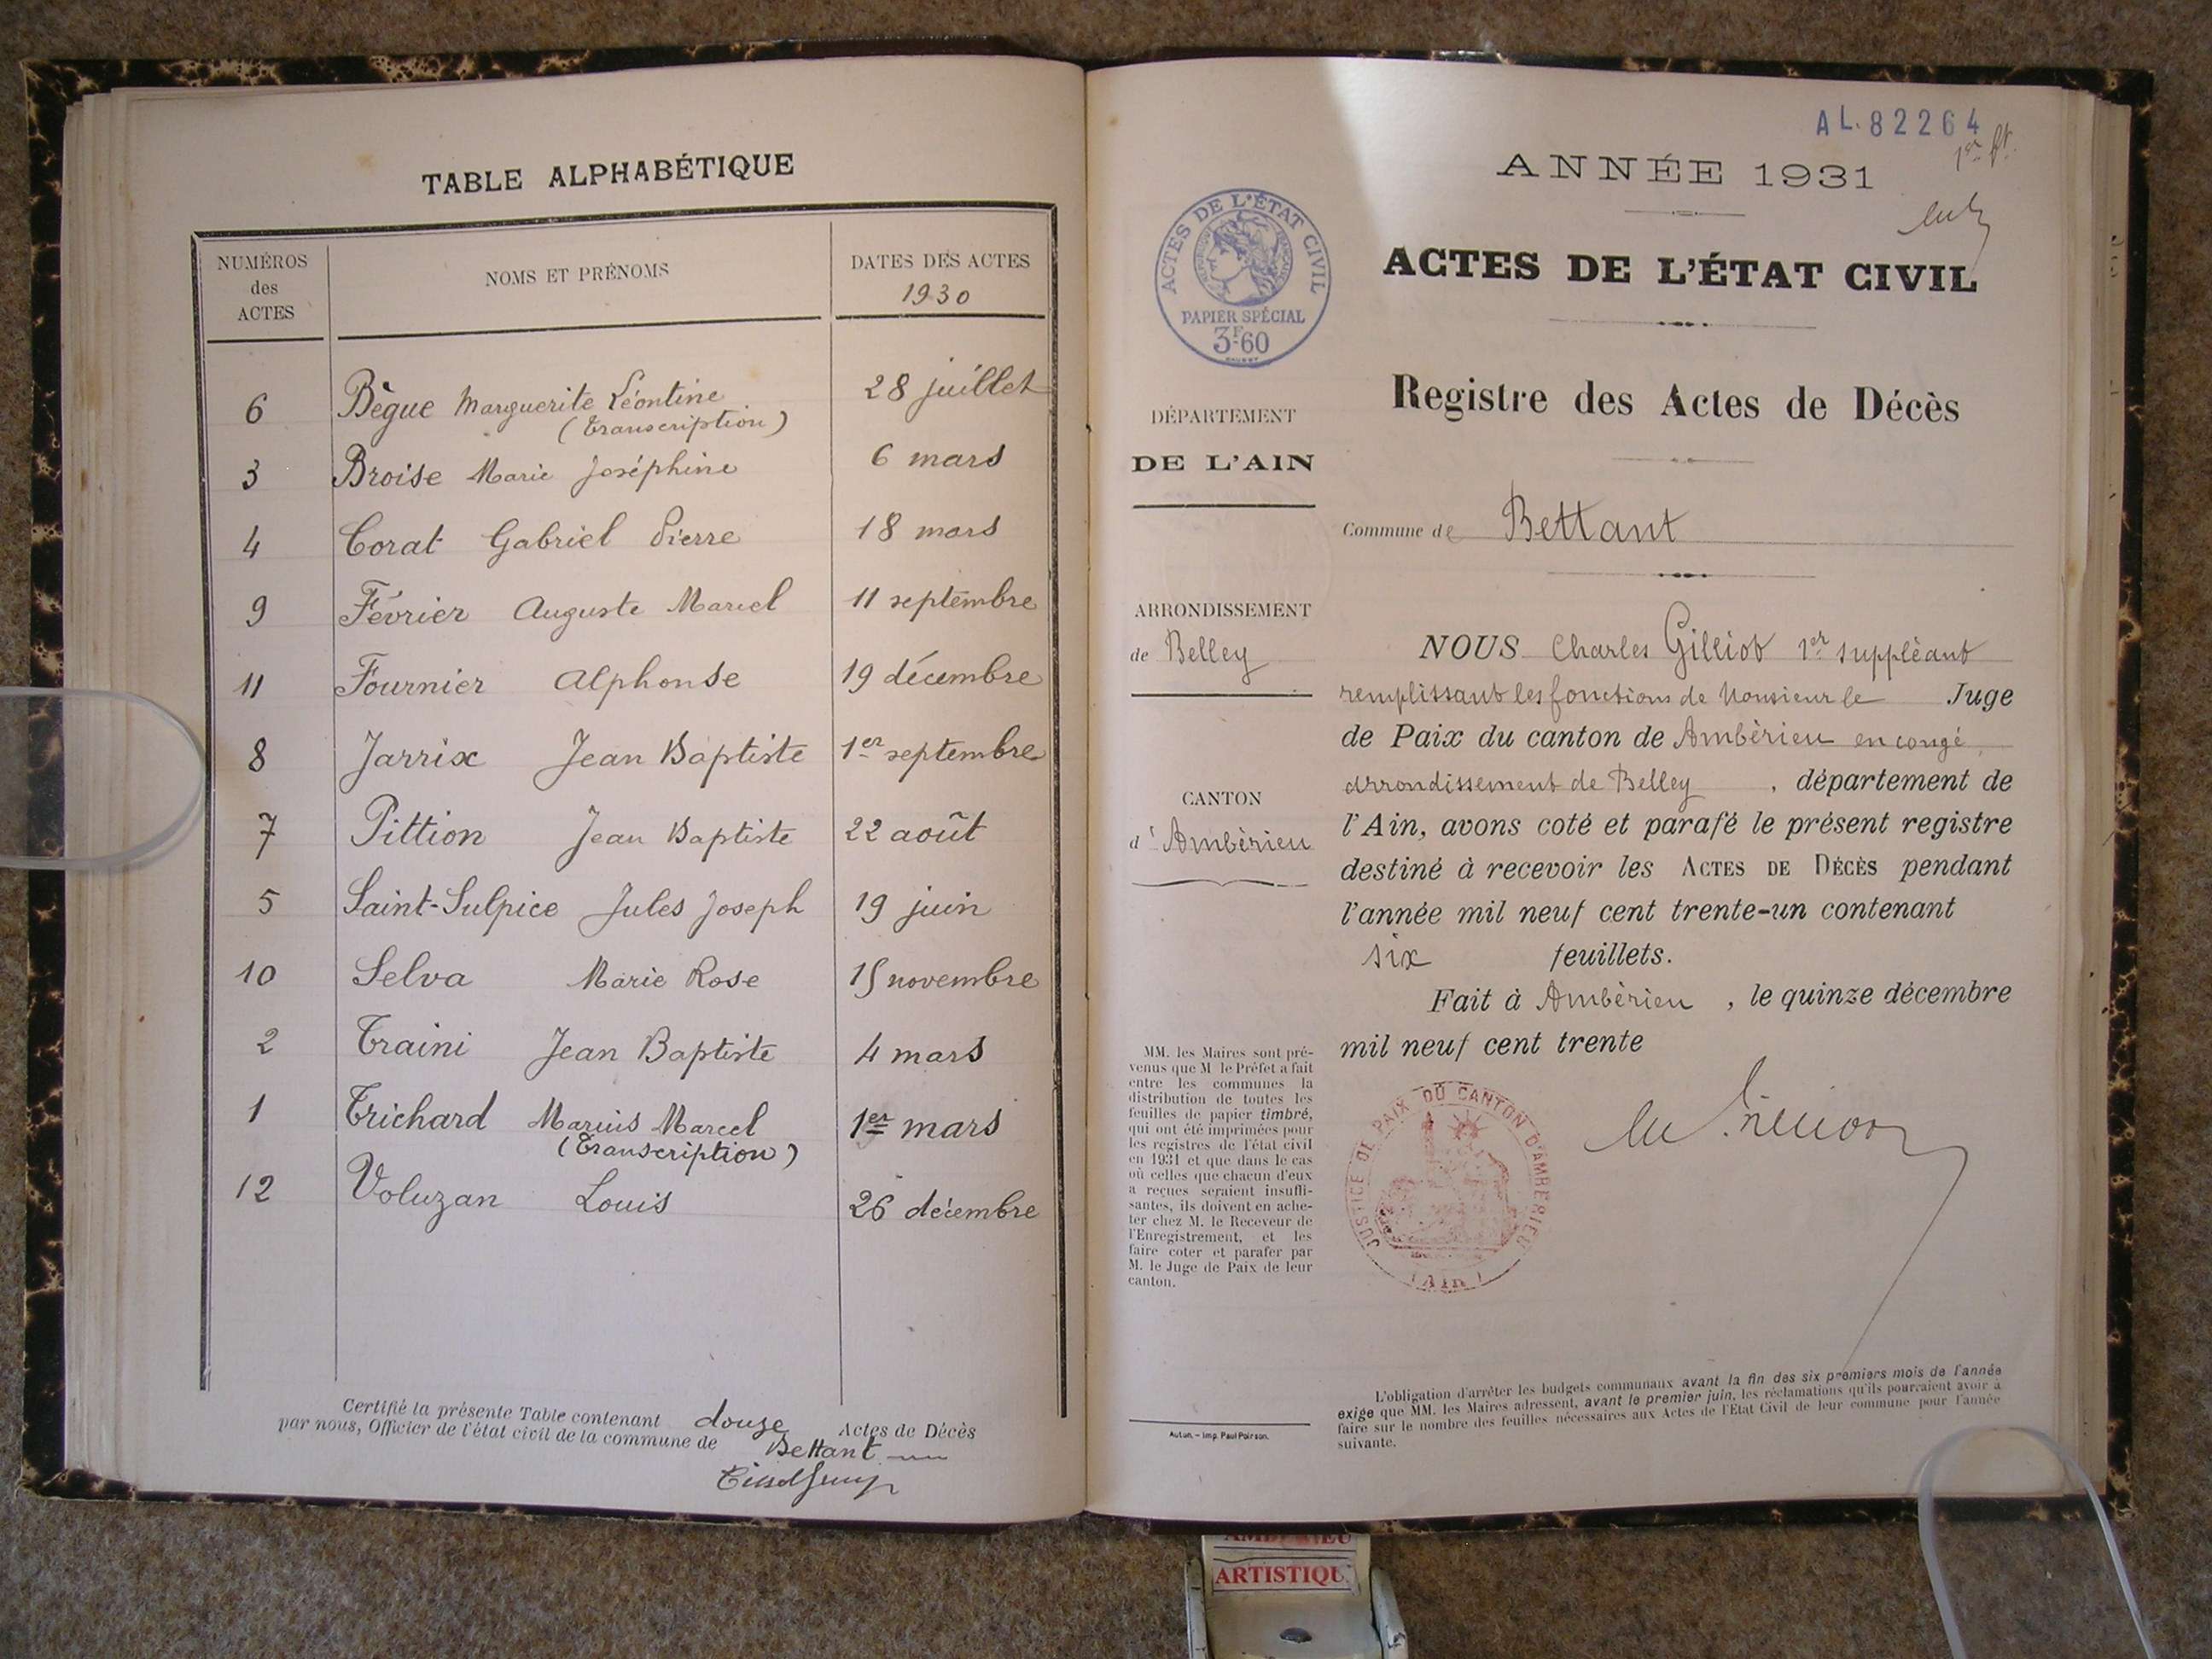 TABLE ALPHABÉTIQUE
NUMÉROS des ACTES
NOMS ET PRÉNOMS
DATES DES ACTES 1930
6 Bègue Marguerite Léontine 28 juillet
(Transcription)
3 Broise Marie Joséphine 6 mars
4 Corat Gabriel Pierre 18 mars
9 Février Auguste Marcel 11 septembre
11 Fournier Alphonse 19 décembre
8 Jarrix Jean Baptiste 1er septembre
7 Pittion Jean Baptiste 22 août
5 Saint-Sulpice Jules Joseph 19 juin
10 Selva Marie Rose 15 novembre
2 Traini Jean Baptiste 4 mars
1 Trichard Marius Marcel 1er mars
(Transcription)
12 Voluzan Louis 26 décembre
Certifié la présente Table contenant douze Actes de Décès
par nous, Officier de l'état civil de la commune de Bettant
AL. 82264
1er ft.
ANNÉE 1931
ACTES DE L'ÉTAT CIVIL
PAPIER SPÉCIAL
3F60
ACTES DE L'ÉTAT CIVIL
Registre des Actes de Décès
DÉPARTEMENT
DE L'AIN
Commune de Bettant
ARRONDISSEMENT
de Belley
CANTON
d'Ambérieu
NOUS Charles Gilliot 1er suppléant
remplissant les fonctions de Monsieur le Juge
de Paix du canton de Ambérieu en congé,
arrondissement de Belley, département de
l'Ain, avons coté et parafé le présent registre
destiné à recevoir les ACTES DE DÉCÈS pendant
l'année mil neuf cent trente-un contenant
six feuillets.
Fait à Ambérieu, le quinze décembre
mil neuf cent trente
MM. les Maires sont pré-
venus que M le Préfet a fait
entre les communes la
distribution de toutes les
feuilles de papier timbré,
qui ont été imprimées pour
les registres de l'état civil
en 1931 et que dans le cas
où celles que chacun d'eux
a reçues seraient insuffi-
santes, ils doivent en ache-
ter chez M. le Receveur de
l'Enregistrement, et les
faire coter et parafer par
M. le Juge de Paix de leur
canton.
JUSTICE DE PAIX DU CANTON D'AMBÉRIEU
(AIN)
L'obligation d'arrêter les budgets communaux avant la fin des six premiers mois de l'année
exige que MM. les Maires adressent, avant le premier juin, les réclamations qu'ils pourraient avoir à
faire sur le nombre des feuilles nécessaires aux Actes de l'Etat Civil de leur commune pour l'année
suivante.
Autun. – Imp. Paul Poirson.
ARTISTIQU